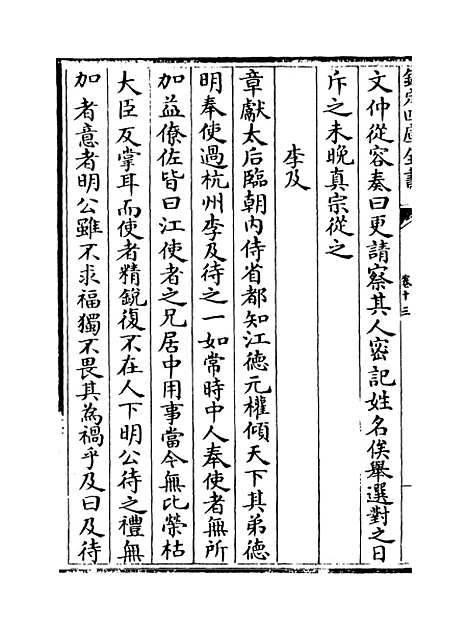 欽定四庫全書
卷十三
文仲從容奏曰更請察其人密記姓名俟舉選對之日
斥之未晚真宗從之
李及
章獻太后臨朝內侍省都知江德元權傾天下其弟德
明奉使過杭州李及待之一如常時中人奉使者無所
加益僚佐皆曰江使者之兄居中用事當今無比榮枯
大臣反掌耳而使者精銳復不在人下明公待之禮無
加者意者明公雖不求福獨不畏其為禍乎及曰及待